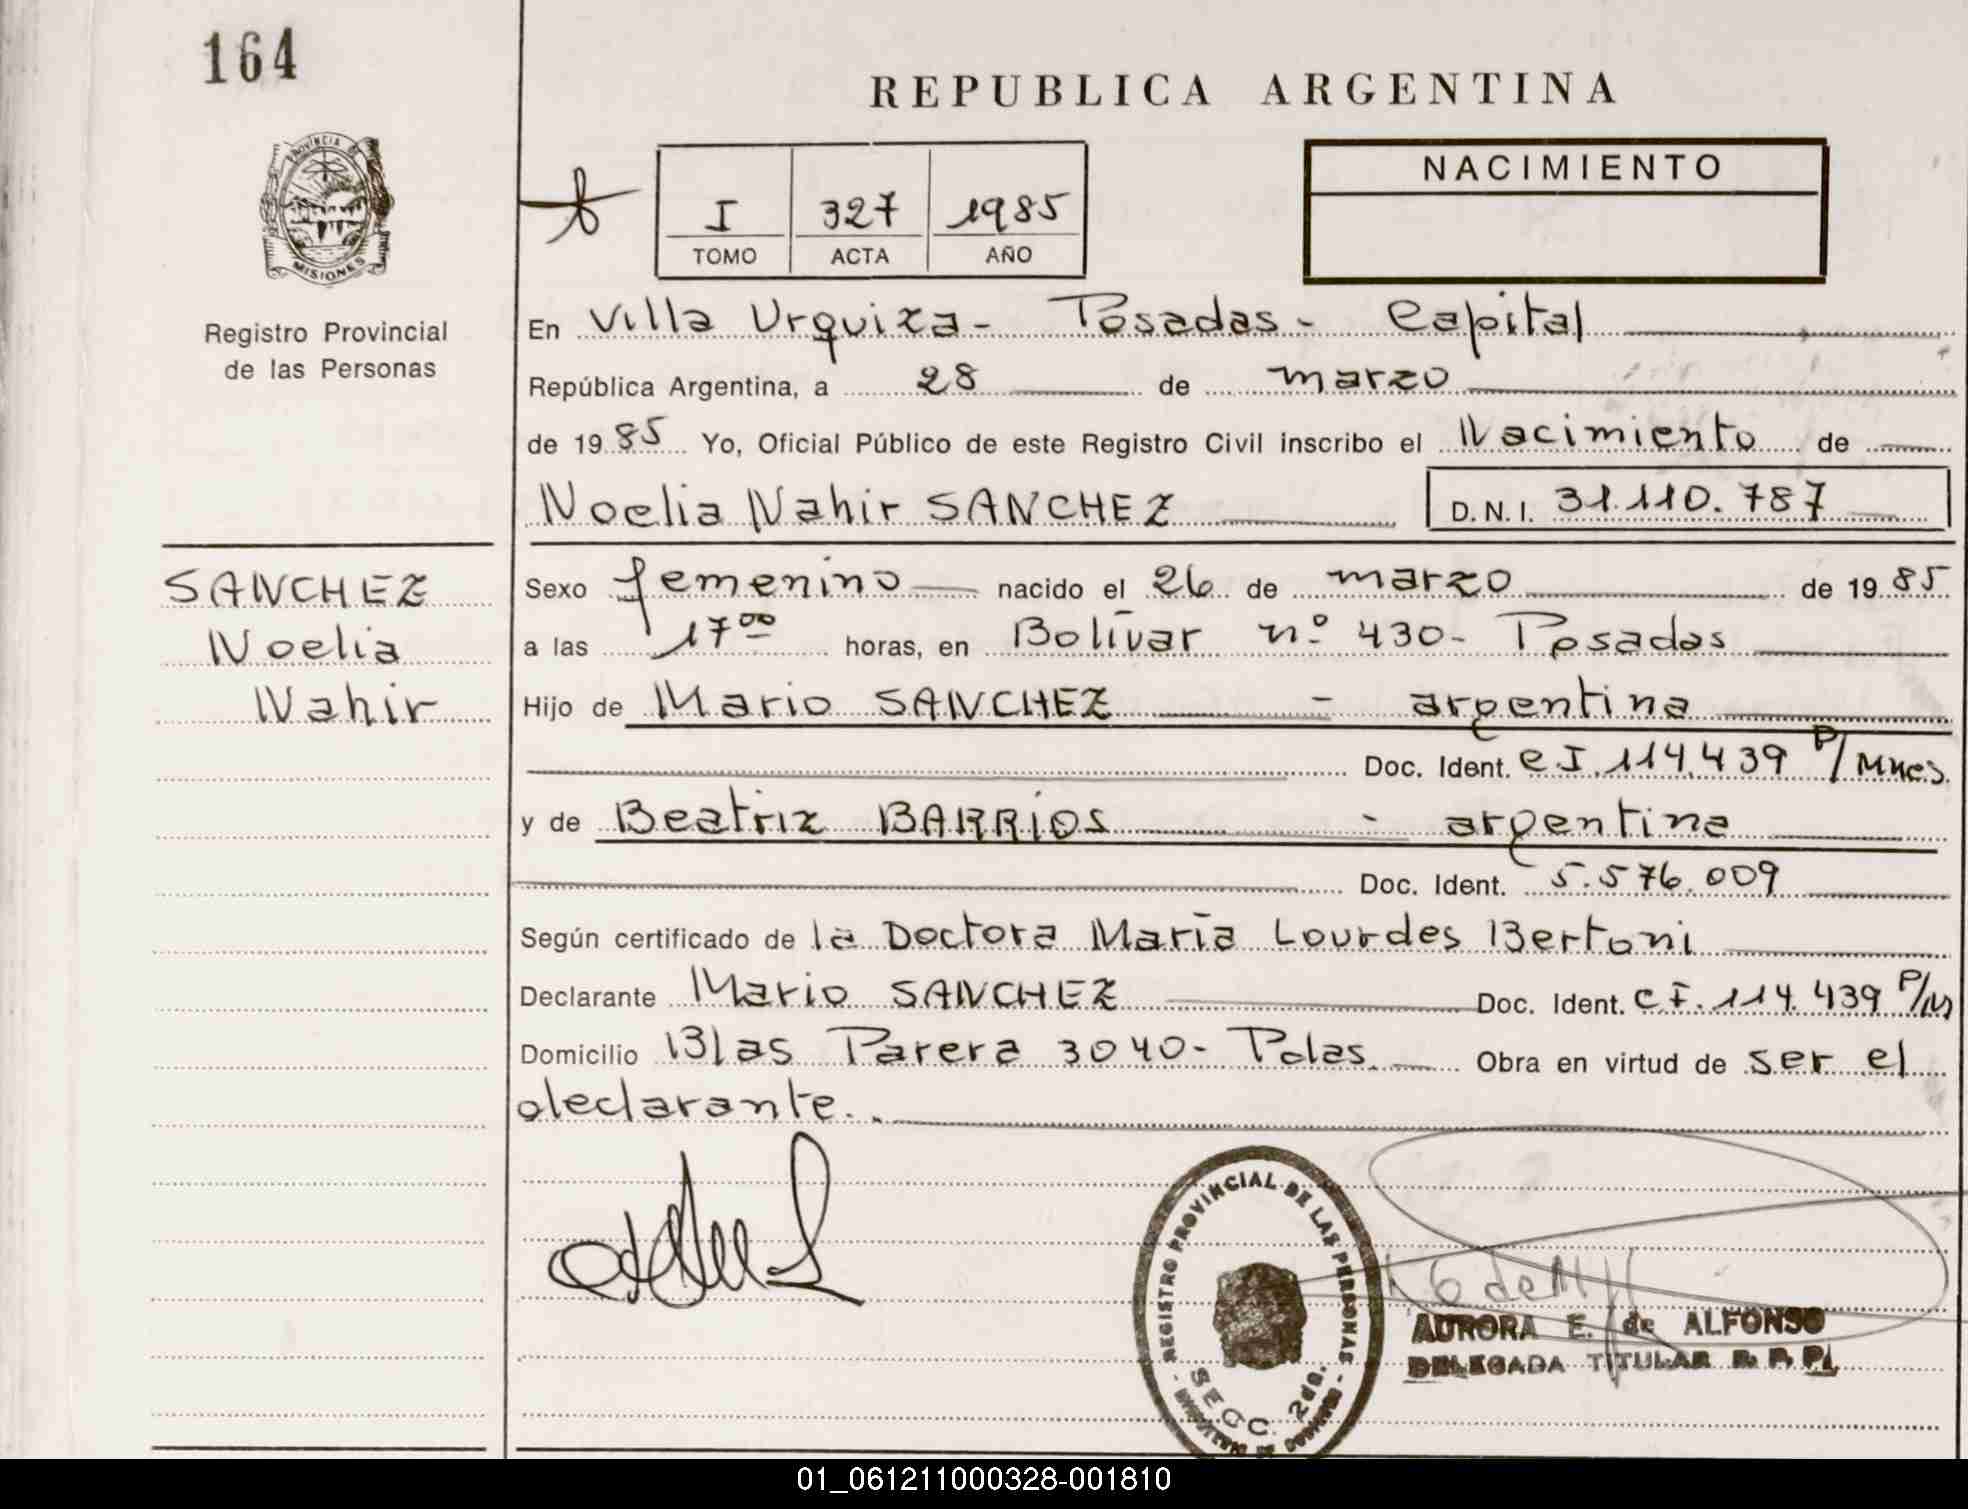 164
REPUBLICA ARGENTINA
PROVINCIA DE
MISIONES
Registro Provincial
de las Personas
I 327 1985
TOMO ACTA AÑO
NACIMIENTO
En Villa Urquiza - Posadas - Capital
República Argentina, a 28 de marzo
de 1985 Yo, Oficial Público de este Registro Civil inscribo el Nacimiento de
Noelia Nahir SANCHEZ D.N.I. 31.110.787
SANCHEZ
Noelia
Nahir
Sexo femenino nacido el 26 de marzo de 1985
a las 17⁰⁰ horas, en Bolívar nº 430 - Posadas
Hijo de Mario SANCHEZ - argentina
Doc. Ident. C.I. 114.439 P/Mnes.
y de Beatriz BARRIOS - argentina
Doc. Ident. 5.576.009
Según certificado de la Doctora María Lourdes Bertoni
Declarante Mario SANCHEZ Doc. Ident. C.I. 114.439 P/M
Domicilio Blas Parera 3040 - Pdas. Obra en virtud de ser el
declarante.
- REGISTRO PROVINCIAL DE LAS PERSONAS -
SECC. 2da.
AURORA E. de ALFONSO
DELEGADA TITULAR R. P. P.
01_061211000328-001810